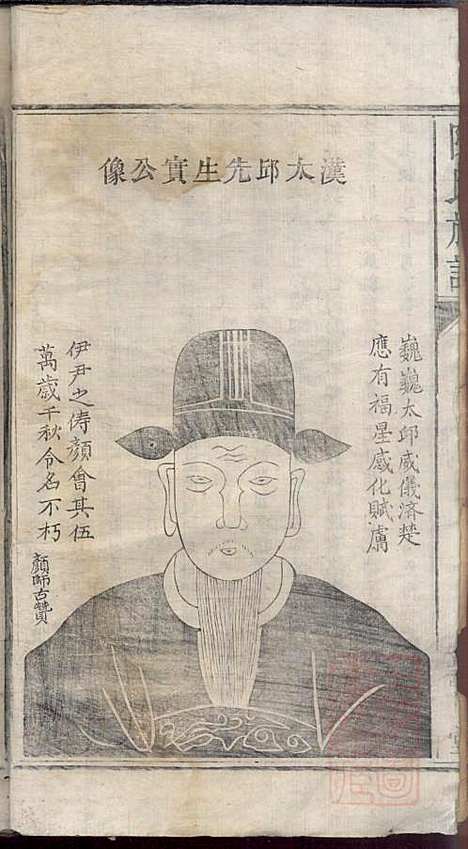 漢太邱先生寔公像
巍巍太邱威儀濟楚
應有福星感化賦膚
伊尹之儔顏會其伍
萬歲千秋令名不朽
顏師古贊